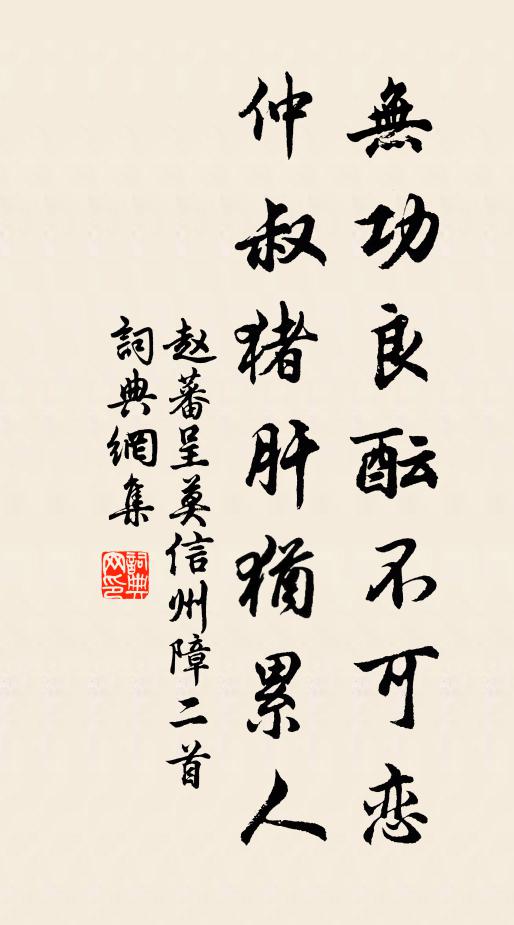 無功良酝不可恋
仲叔猪肝猶累人
赵蕃呈莫信州障二首
詞典網集
詞典网印